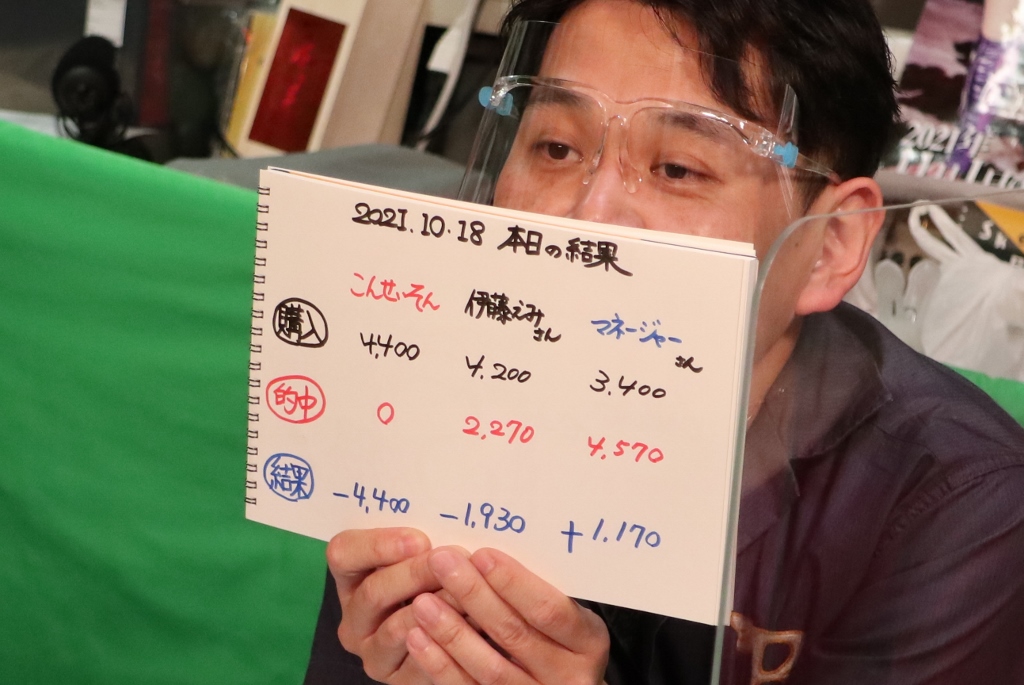 2021.10.18 本日の結果
こんせいそん 伊藤えみさん マネージャーさん
購入 4,400 4,200 3,400
的中 0 2,270 4,570
結果 -4,400 -1,930 +1,170